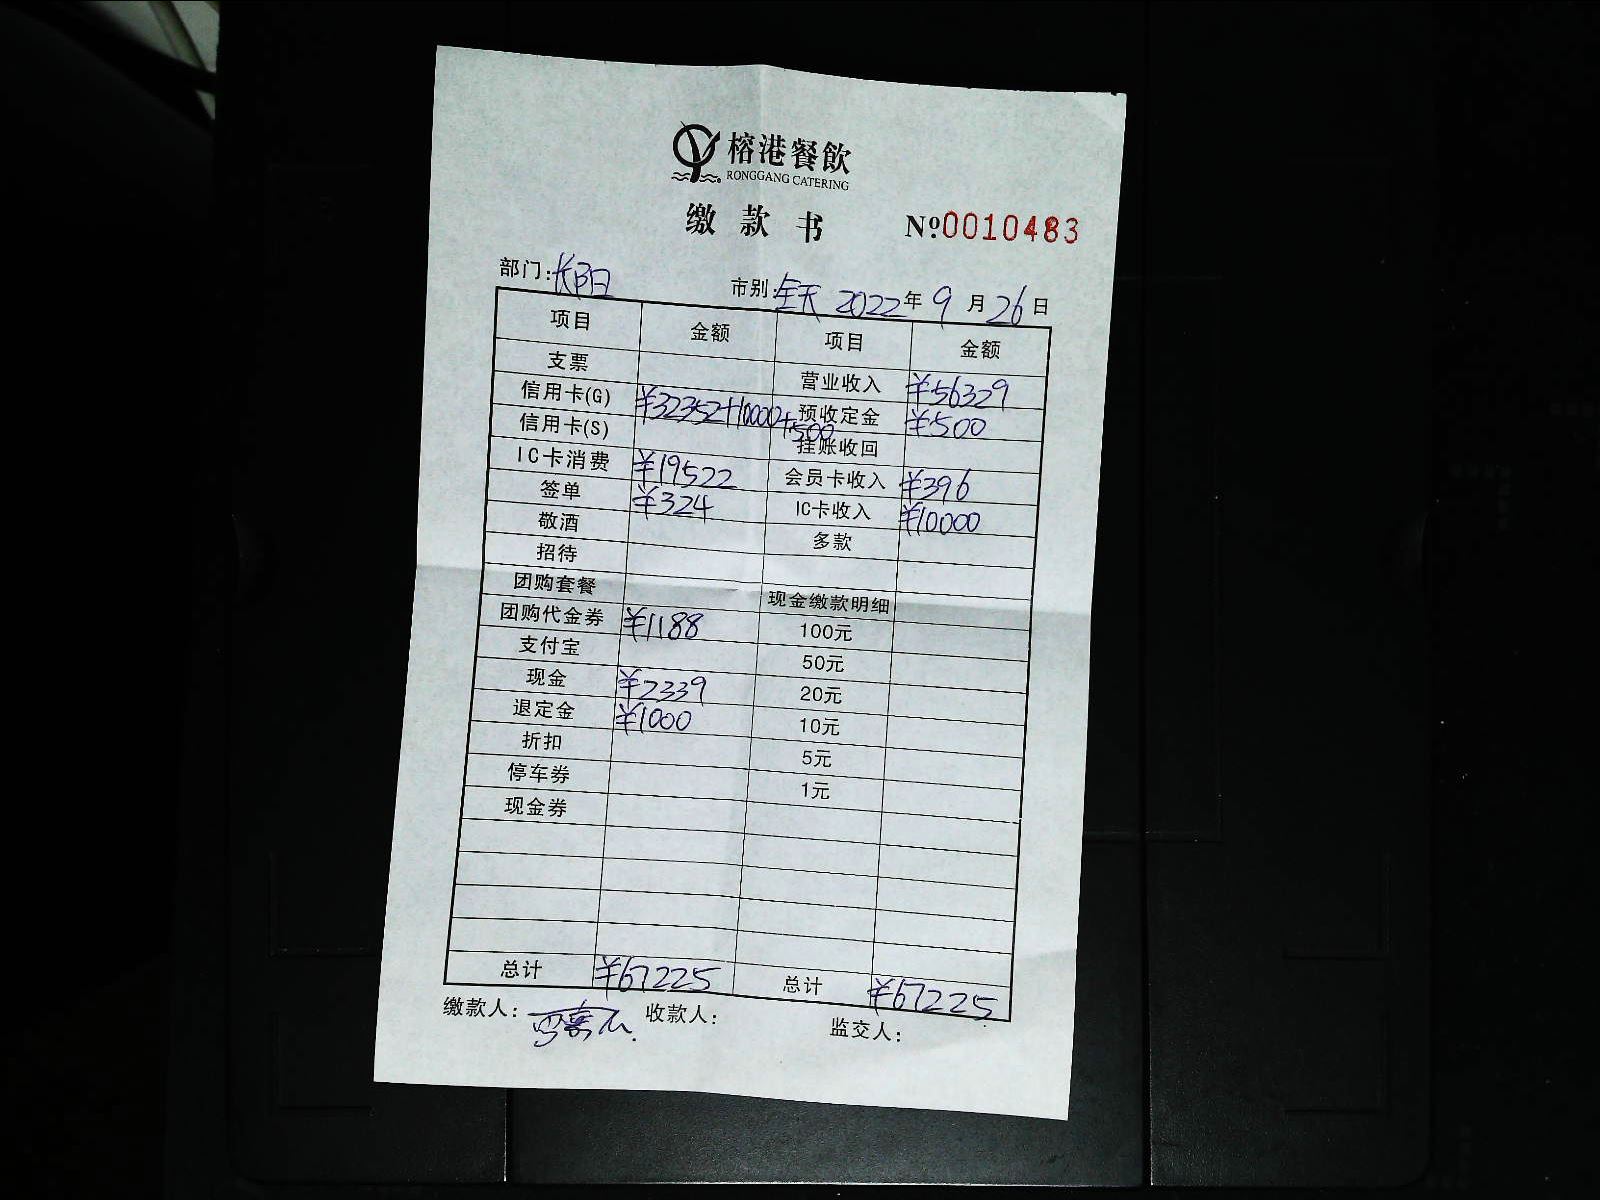 榕港餐飲
RONGGANG CATERING
缴款书 №0010483
部门:长阳 市别:全天 2022年9月26日
项目 金额 项目 金额
支票 营业收入 ¥56329
信用卡(G) ¥32352+10000+500 预收定金 ¥500
信用卡(S) 挂账收回
IC卡消费 ¥19522 会员卡收入 ¥396
签单 ¥324 IC卡收入 ¥10000
敬酒 多款
招待
团购套餐 现金缴款明细
团购代金券 ¥1188 100元
支付宝 50元
现金 ¥2339 20元
退定金 ¥1000 10元
折扣 5元
停车券 1元
现金券
总计 ¥67225 总计 ¥67225
缴款人: 收款人: 监交人: